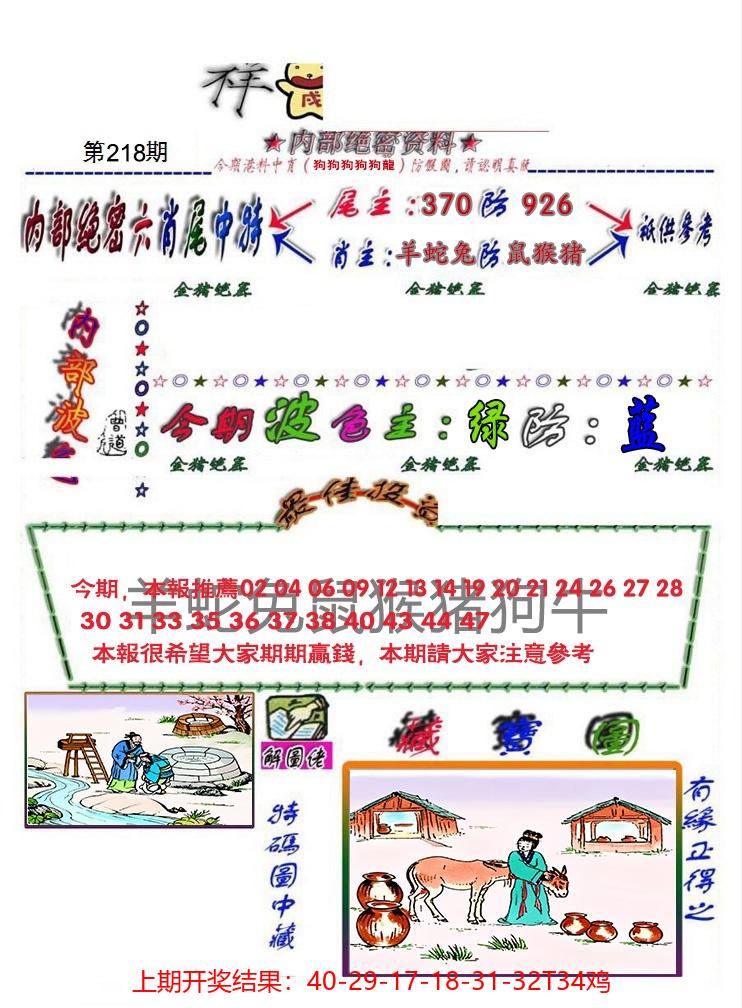 祥
戌
第218期
★内部绝密资料★
今期港料中肖（狗狗狗狗狗龍）防假圖，請認明真版
内部绝密六肖尾中特
尾主:370防 926
肖主:羊蛇兔防鼠猴猪
祇供參考
金猪绝密 金猪绝密 金猪绝密
内部波
曾道
今期波色主:绿防:蓝
金猪绝密 金猪绝密 金猪绝密
最佳投资
羊蛇兔鼠猴猪狗牛
今期，本報推薦02 04 06 09 12 13 14 19 20 21 24 26 27 28
30 31 33 35 36 37 38 40 43 44 47
本報很希望大家期期贏錢，本期請大家注意參考
解圖佬
藏寶圖
特碼圖中藏
有緣正得之
上期开奖结果：40-29-17-18-31-32T34鸡